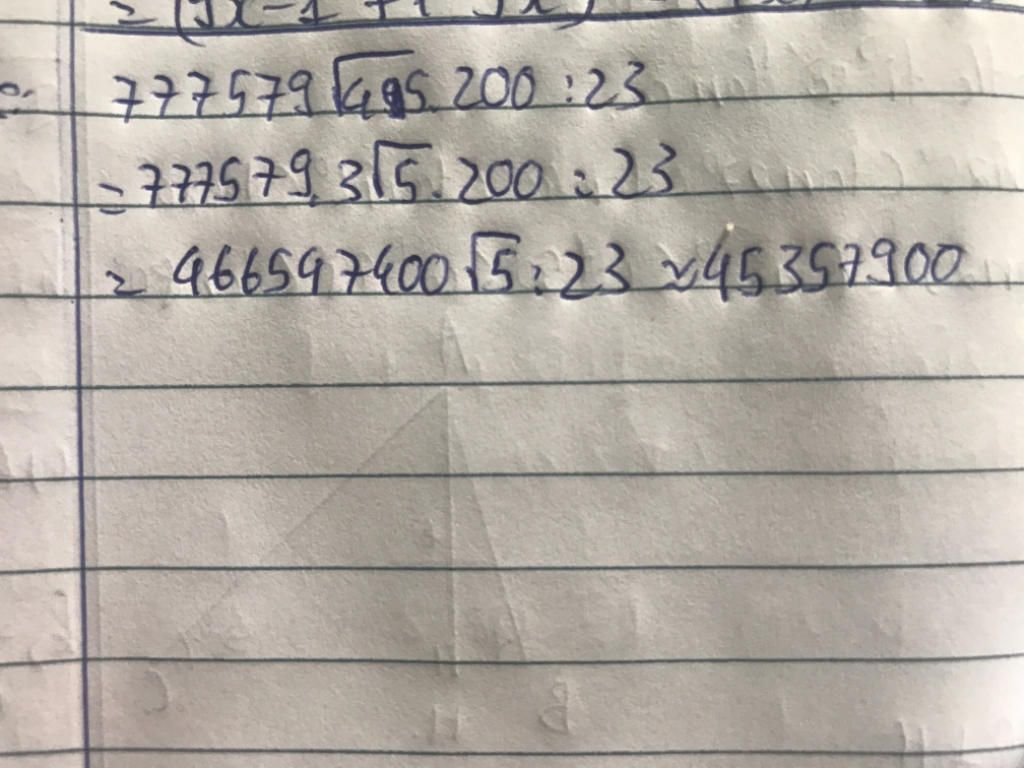 777579√45.200:23
=777579.3√5.200:23
= 466547400√5:23 ~45357900